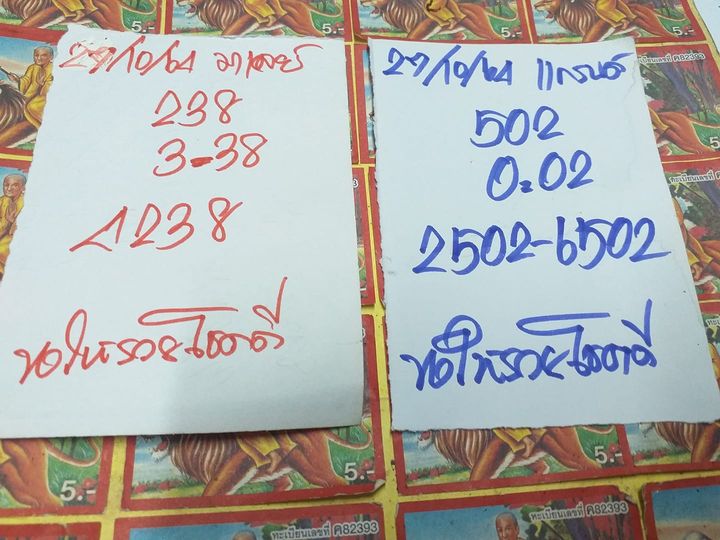 27/10/64 มาเลย์
238
3=38
1238
ขอให้รวยโชคดี
27/10/64 แกรนด์
502
0=02
2502-6502
ขอให้รวยโชคดี
5.-
5.-
5.-
5.-
5.-
5.-
ทะเบียนเลขที่ ค82393
ทะเบียนเลขที่ ค82393
ทะเบียนเลขที่ ค82393